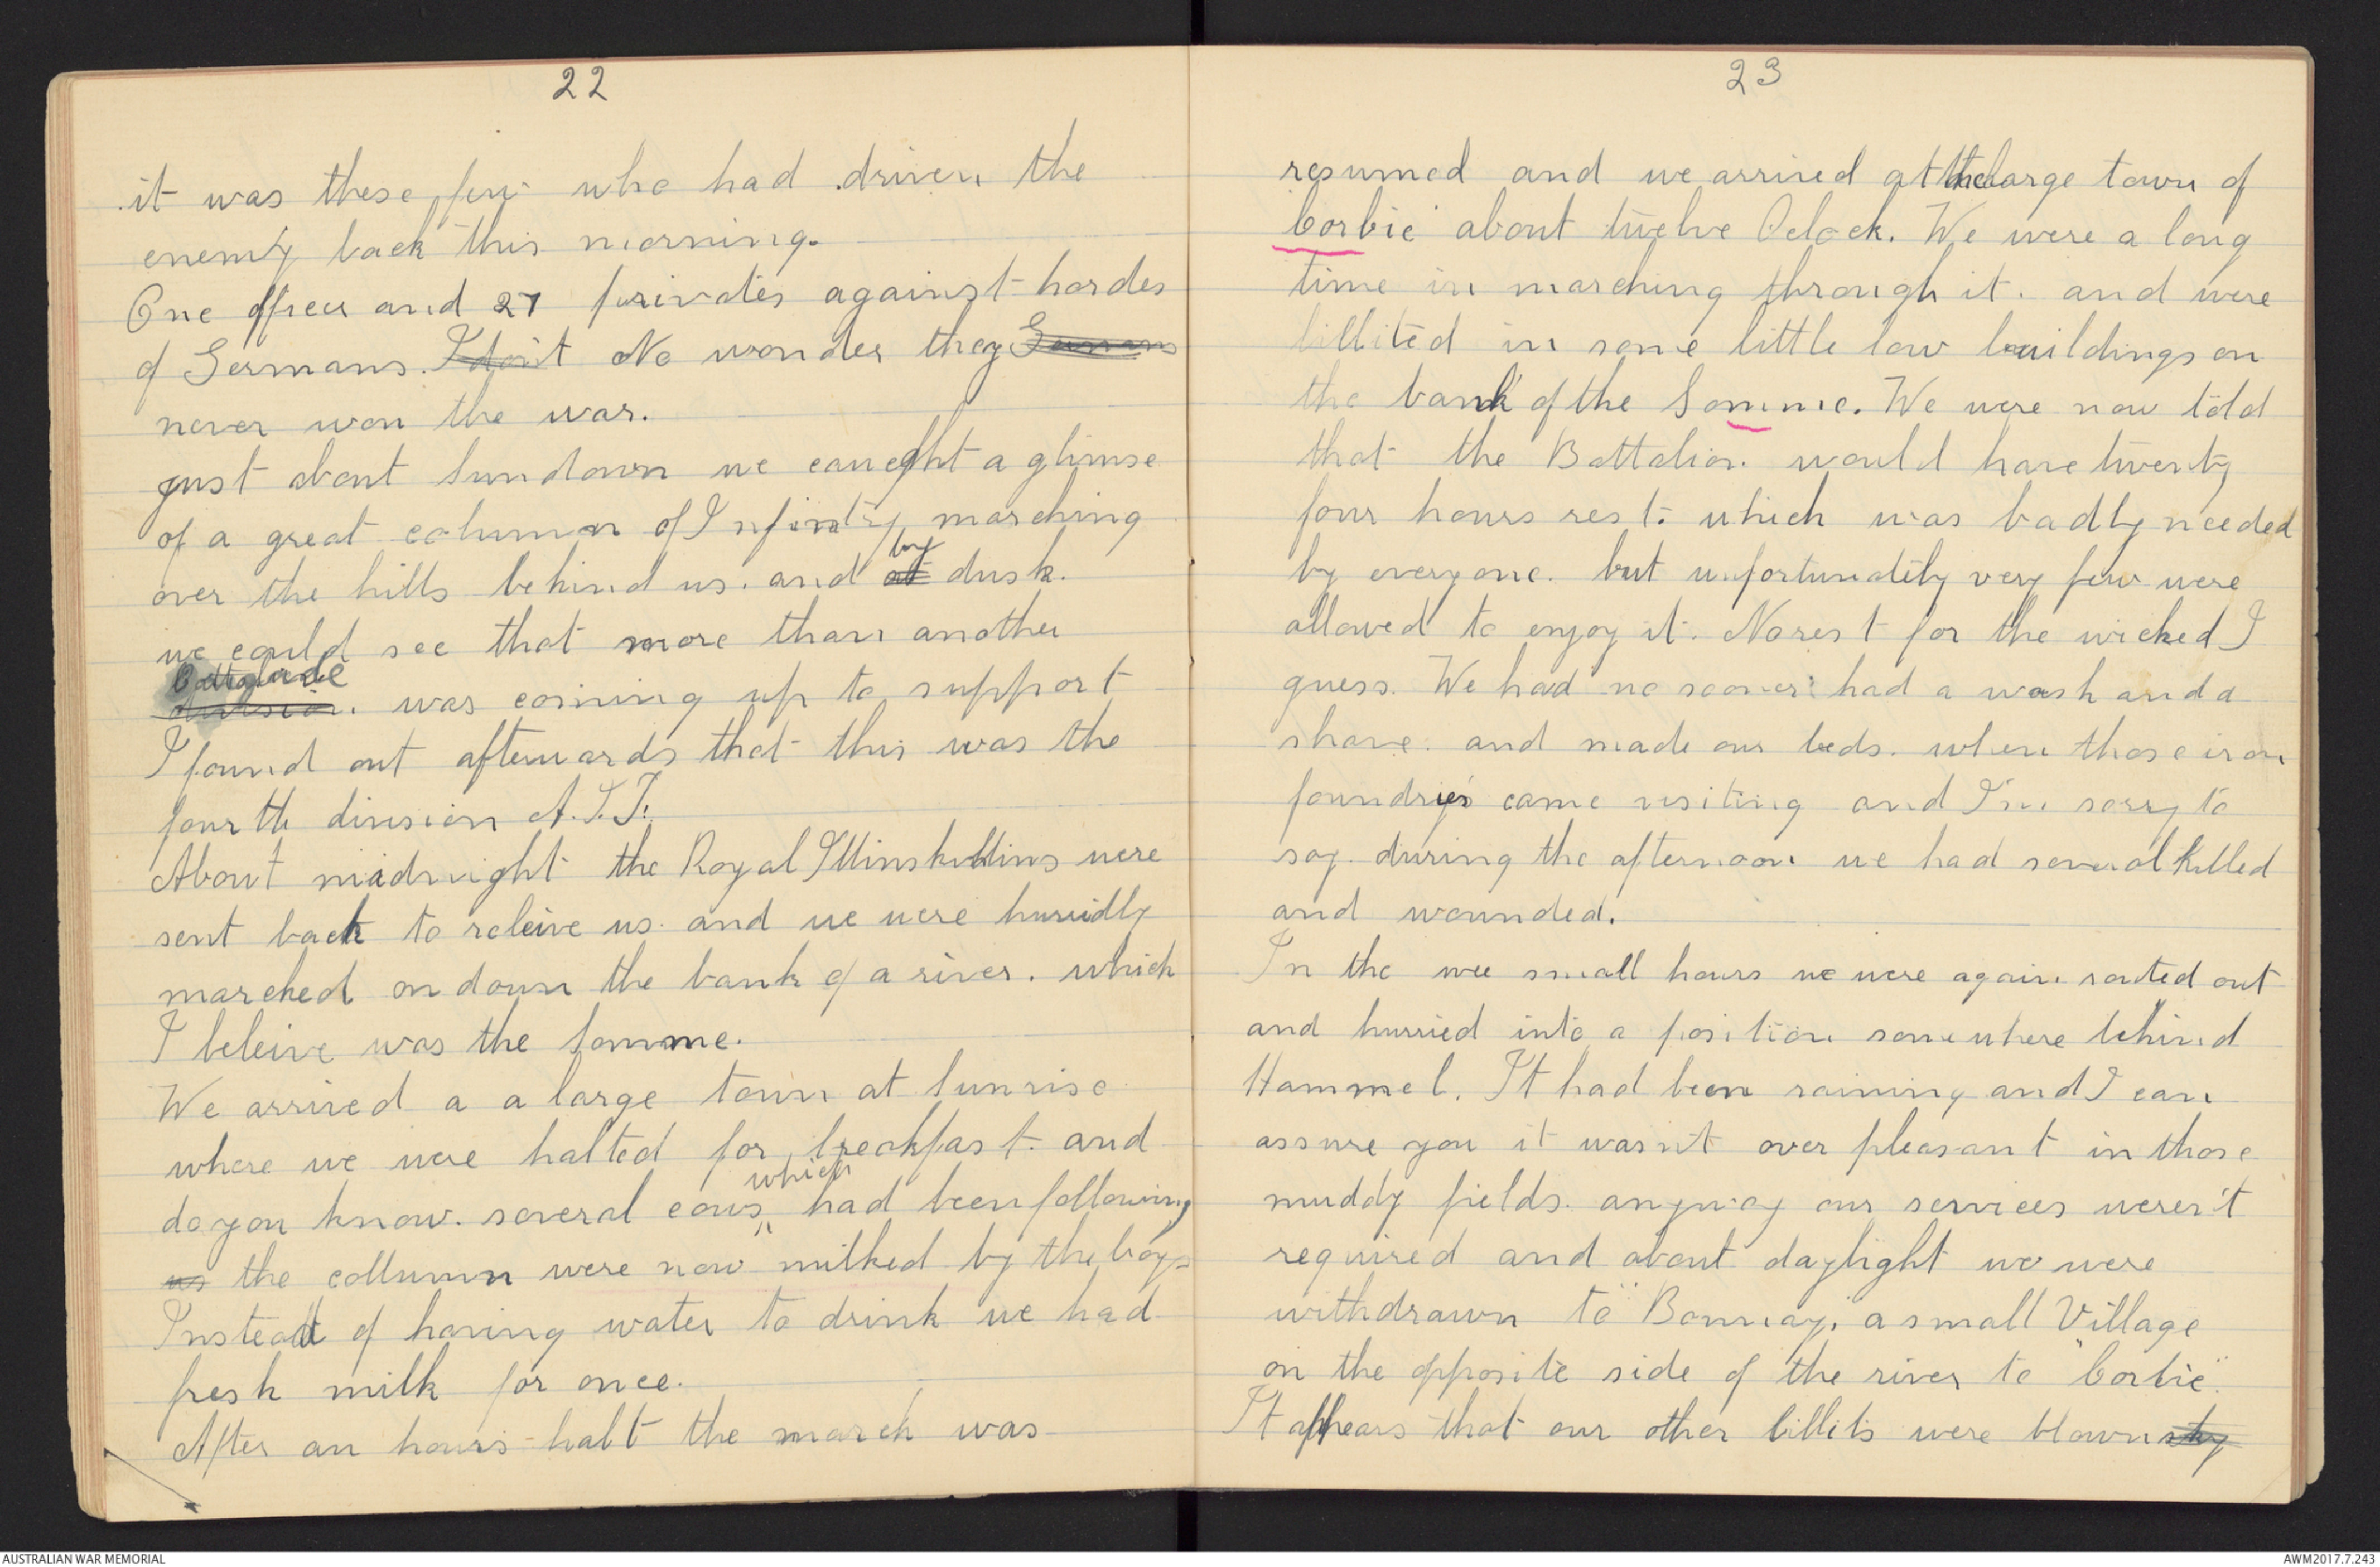 22
it was these few who had driven the
enemy back this morning.
One officer and 27 privates against hordes
of Germans. I don't No wonder they Germans
never won the war.
just about Sundown we caught a glimse
of a great column of Infintry marching
over the hills behind us. and at by dusk.
we could see that more than another
division. was coming up to support
I found out afterwards that this was the
fourth division A.I.F.
About midnight the Royal Illinskillins were
sent back to releive us. and we were huriedly
marched on down the bank of a river. which
I beleive was the Somme.
We arrived a a large town at Sunrise
where we were halted for breakfast. and
do you know. several cows which had been following
us the collumn were now milked by the boys
Instead of having water to drink we had
fresh milk for once.
After an hours halt the march was
23
resumed and we arrived at the large town of
Corbie about twelve Oclock. We were a long
time in marching through it. and were
billited in some little low buildings on
the bank of the Somme. We were now told
that the Battalion. would have twenty
four hours rest. which was badly needed
by everyone. but unfortunately very few were
allowed to enjoy it. No rest for the wicked I
guess. We had no sooner had a wash and a
shave. and made our beds. when those iron
foundries came visiting and I'm sorry to
say. during the afternoon we had several killed
and wounded.
In the wee small hours we were again routed out
and hurried into a position somewhere behind
Hammel. It had been raining and I can
assure you it wasn't over pleasant in those
muddy fields. anyway our services weren't
required and about daylight we were
withdrawn to "Bonnay. a small Village
on the opposite side of the river to "Corbie".
It appears that our other billits were blown sky
AUSTRALIAN WAR MEMORIAL
AWM2017.7.243